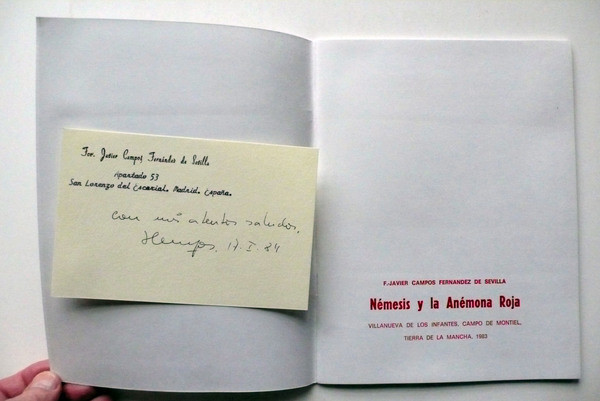 Fco. Javier Campos Fernández de Sevilla
Apartado 53
San Lorenzo del Escorial. Madrid. España.
Con mis atentos saludos,
17. I. 84
F.-JAVIER CAMPOS FERNANDEZ DE SEVILLA
Némesis y la Anémona Roja
VILLANUEVA DE LOS INFANTES. CAMPO DE MONTIEL,
TIERRA DE LA MANCHA. 1983